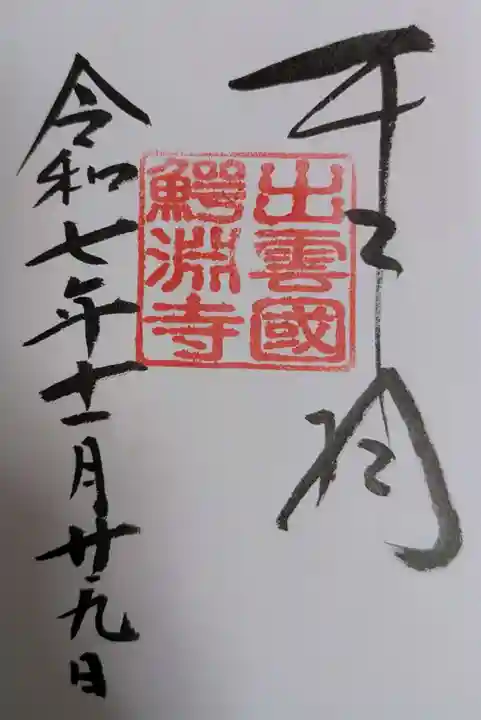 出雲國
鰐淵寺
令和七年十一月廿九日